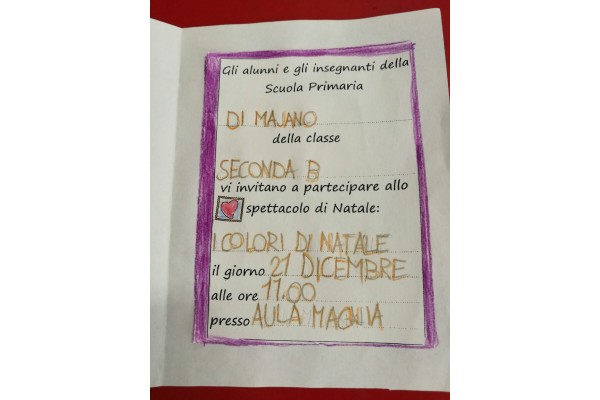 Gli alunni e gli insegnanti della
Scuola Primaria
DI MAJANO
della classe
SECONDA B
vi invitano a partecipare allo
spettacolo di Natale:
I COLORI DI NATALE
il giorno 21 DICEMBRE
alle ore 11.00
presso AULA MAGNIA